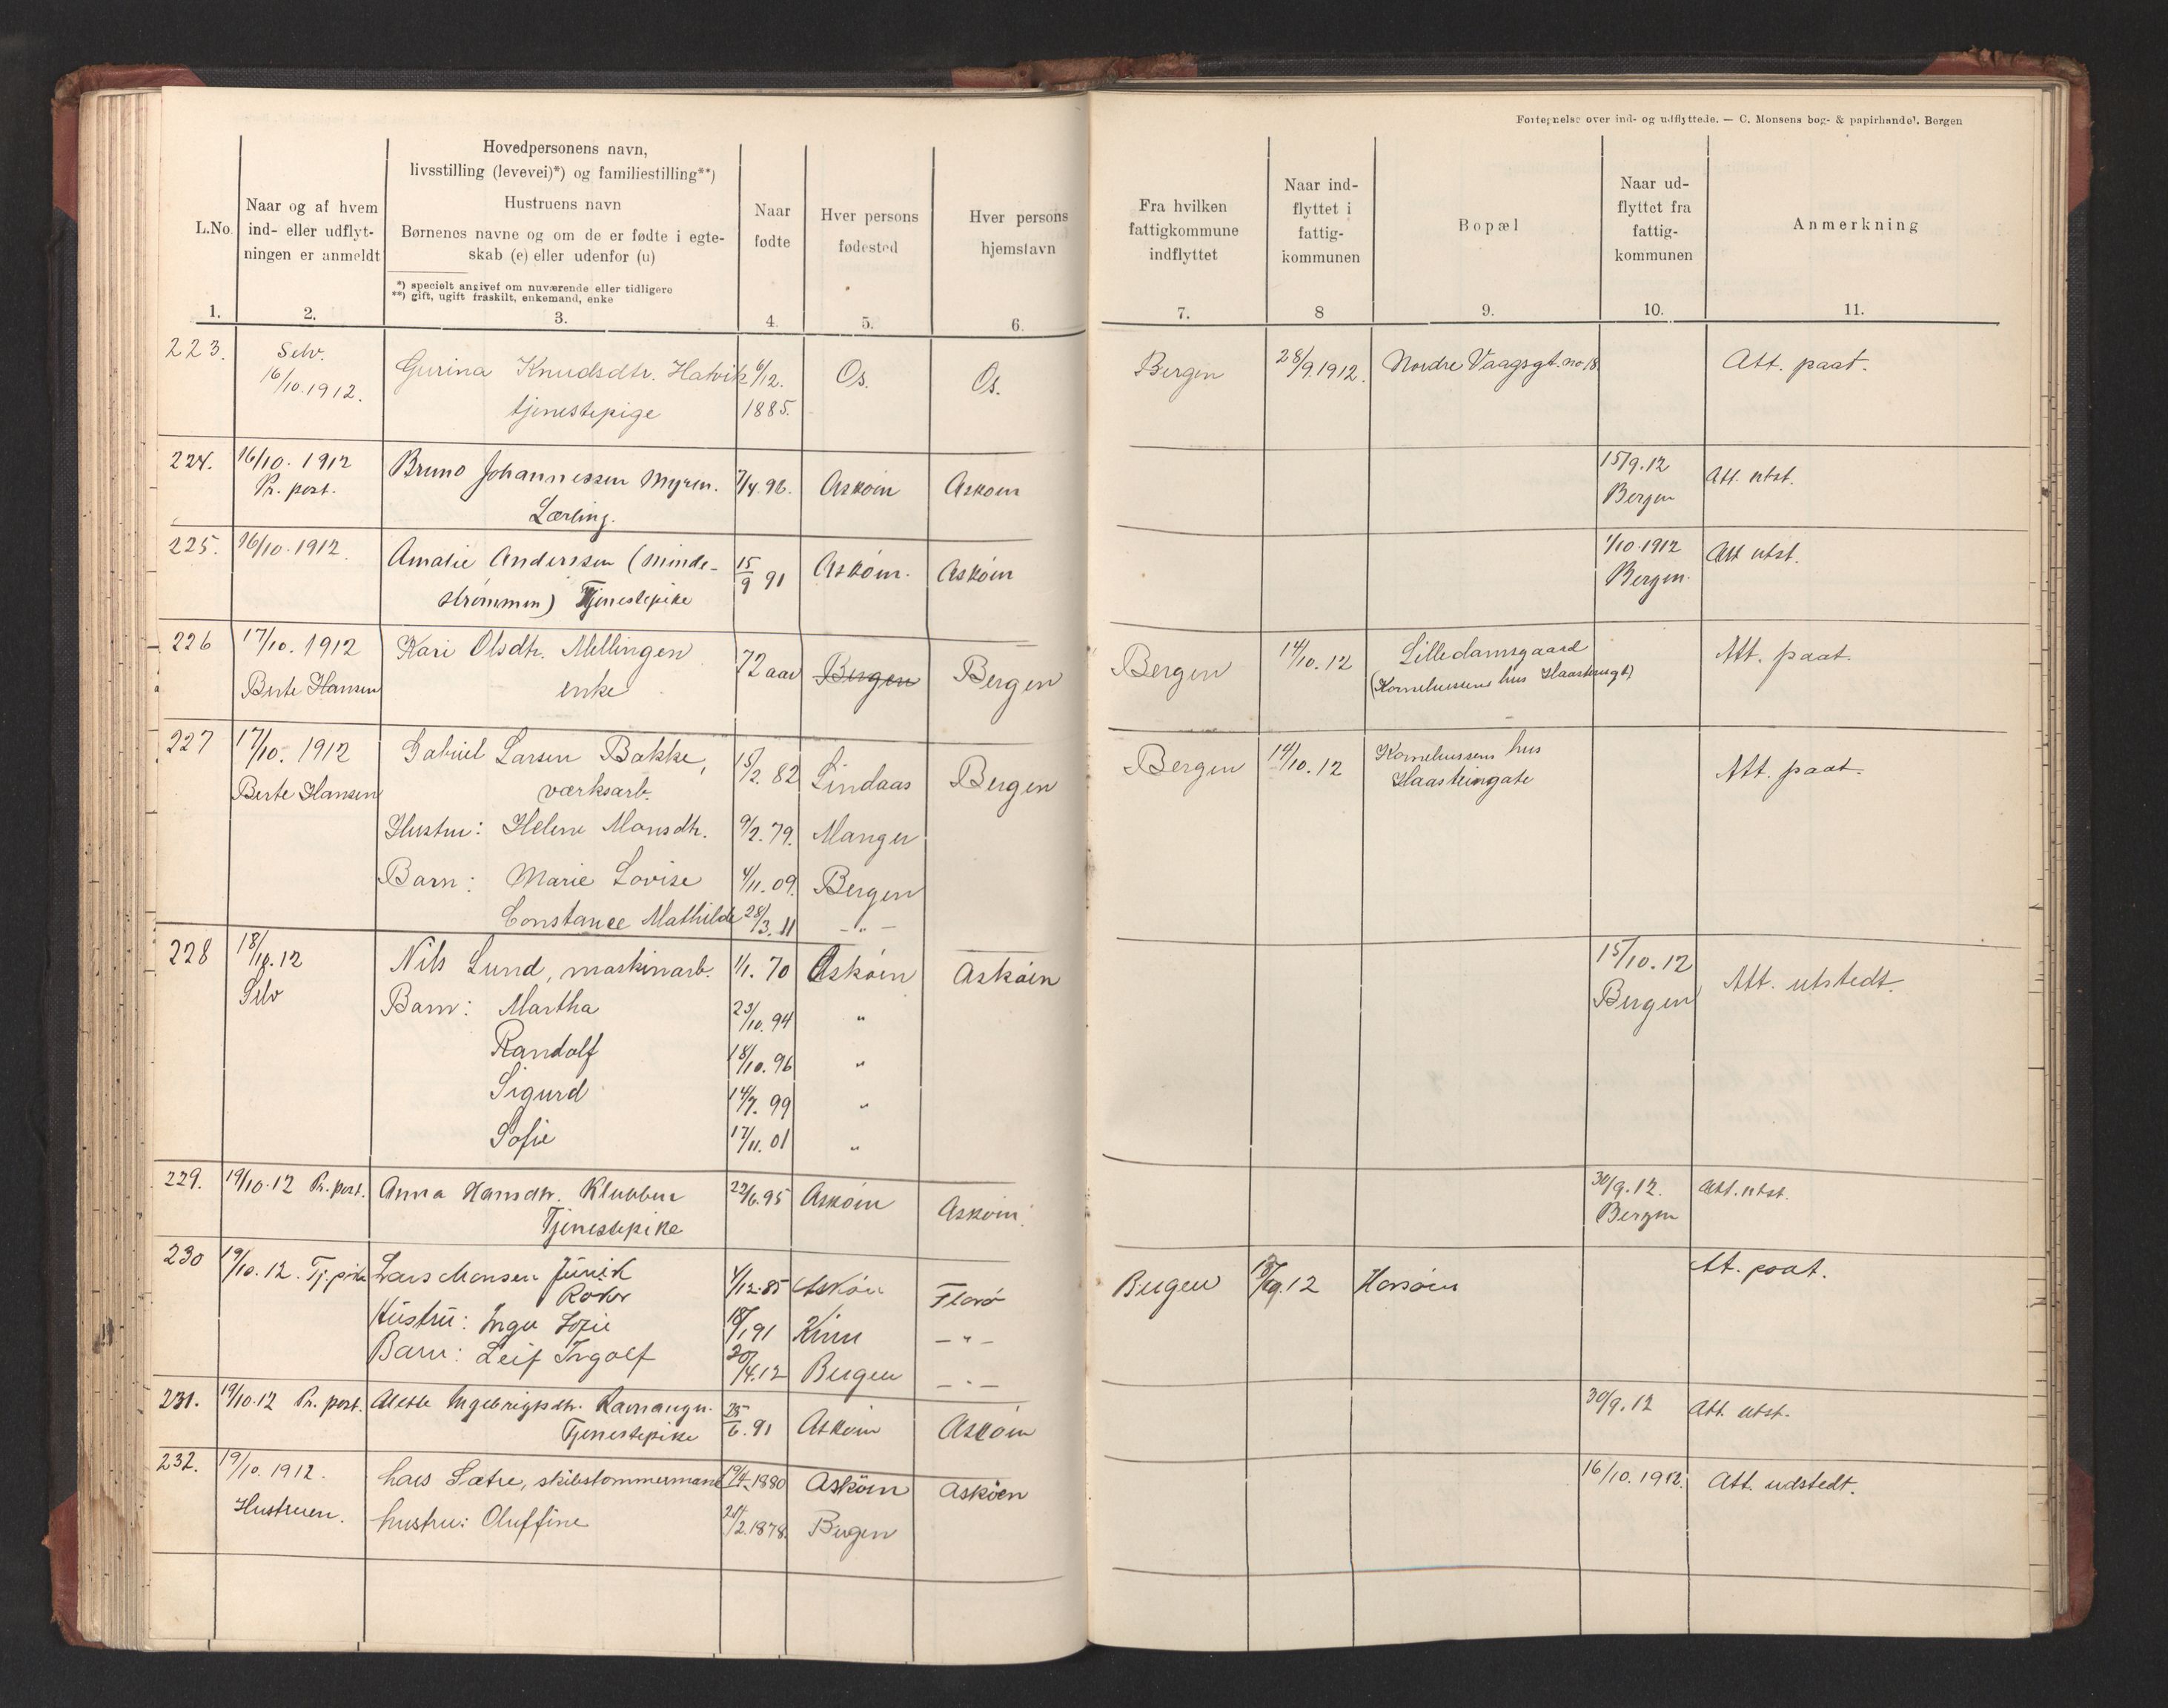 Fortegnelse over ind- og udflyttede. — C. Monsens bog- & papirhandel. Bergen
L.No.
1.
Naar og af hvem
ind- eller udflyt-
ningen er anmeldt
2.
Hovedpersonens navn,
livsstilling (levevei)*) og familiestilling**)
Hustruens navn
Børnenes navne og om de er fødte i egte-
skab (e) eller udenfor (u)
*) specielt angivet om nuværende eller tidligere
**) gift, ugift fraskilt, enkemand, enke
3.
Naar
fødte
4.
Hver persons
fødested
5.
Hver persons
hjemstavn
6.
Fra hvilken
fattigkommune
indflyttet
7.
Naar ind-
flyttet i
fattig-
kommunen
8
Bopæl
9.
Naar ud-
flyttet fra
fattig-
kommunen
10.
Anmerkning
11.
223. Selv. Gurina Knudsdtr. Hatvik 6/12. Os. Os. Bergen 28/9.1912. Nordre Vaagsgt. no 18. Att. paat.
16/10.1912. tjenestepige 1885.
224. 16/10. 1912 Bruno Johannessen Myren. 7/4.96. Askøin Askøin 15/9.12 Att. utst.
Pr. post. Lærling. Bergen
225. 16/10.1912. Amalie Anderssen (Minde- 15/9 91 Askøin. Askøin 1/10.1912 Att utst.
strømmen) Tjenestepike Bergen.
226 17/10. 1912 Kari Olsdtr. Mellingen 72 aar Bergen Bergen Bergen 14/10.12 Lilledamsgaard Att. paat.
Berte Hansen enke (Kornelussens hus
227 17/10. 1912 Gabriel Larsen Bakke, 15/2.82 Lindaas Bergen Bergen 14/10.12 Kornelussens hus Att. paat.
Berte Hansen værksarb. Haasteingate
Hustru: Helene Monsdtr. 9/2.79. Manger
Barn: Marie Lovise 4/11.09. Bergen
Constance Mathilde 28/3.11 -"-
228 18/10.12 Nils Lund, maskinarb. 1/1.70 Askøin Askøin 15/10.12 Att. utstedt.
Selv Barn: Martha 23/10.94 " Bergen
Randolf 18/10.96 "
Sigurd 14/7.99 "
Sofie 17/11.01 "
229. 19/10.12 Pr. post. Anna Hansdtr. Klubben 22/6.95 Askøin Askøin. 30/9.12. Att. utst.
Tjenestepike Bergen
230 19/10.12. Lars Monsen Askøin Florø Bergen Horsøen At. paat.
Hustru: Inga Sofie 18/1 91 Kinn -"-
Barn: Leif Ingolf 20/4.12 Bergen -"-
231. 19/10.12 Pr. post. Alette Ingebrigtsdtr. 25/6.91 Askøin Askøin 30/9.12 Att. utst.
Tjenestepike
232. 19/10.1912. Lars Sætre, skibstømmermand 19/4.1880 Askøin Askøen 16/10.1912. Att. udstedt.
Hustruen. hustru: Oluffine 21/2.1878. Bergen